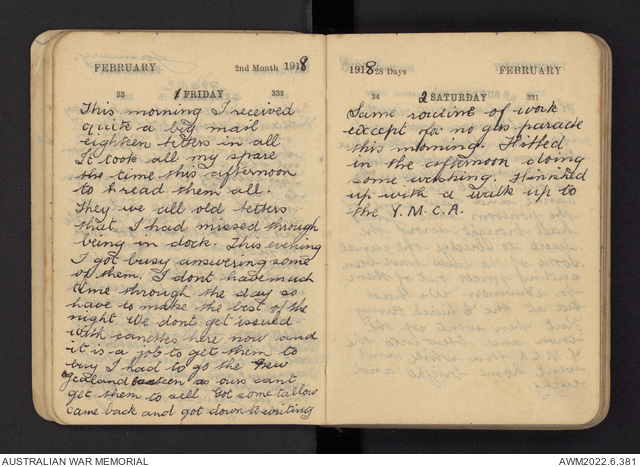 FEBRUARY 2nd Month 1918
23 1 FRIDAY 332
This morning I received
quite a big mail
eighteen letters in all
It took all my spare
the time this afternoon
to read them all.
They we all old letters
that I had missed through
being in dock. This evening
I got busy answering some
of them. I dont have much
time through the day so
have to make the best of the
night We dont get issued
with candles here now and
it is a job to get them to
buy I had to go the New
Zealand as ours cant
get them to sell Got some tallow
came back and got down to writing
1918 28 Days FEBRUARY
34 2 SATURDAY 331
Same routine of work
except for no gas parade
this morning. Filled
in the afternoon doing
some washing. Finished
up with a walk up to
the Y.M.C.A.
AUSTRALIAN WAR MEMORIAL
AWM2022.6.381